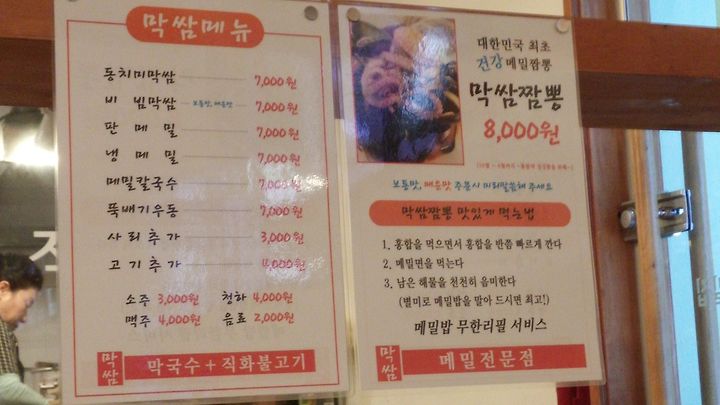 막쌈메뉴
동치미막쌈 7,000원
비빔막쌈 보통맛, 매운맛 7,000원
판메밀 7,000원
냉메밀 7,000원
메밀칼국수 7,000원
뚝배기우동 7,000원
사리추가 3,000원
고기추가 4,000원
소주 3,000원 청하 4,000원
맥주 4,000원 음료 2,000원
막쌈 막국수 + 직화불고기
대한민국 최초
건강메밀짬뽕
막쌈짬뽕
8,000원
보통맛, 매운맛 주문시 미리말씀해 주세요
막쌈짬뽕 맛있게 먹는법
1. 홍합을 먹으면서 홍합을 반쯤 빠르게 깐다
2. 메밀면을 먹는다
3. 남은 해물을 천천히 음미한다
(별미로 메밀밥을 말아 드시면 최고!)
메밀밥 무한리필 서비스
막쌈 메밀전문점